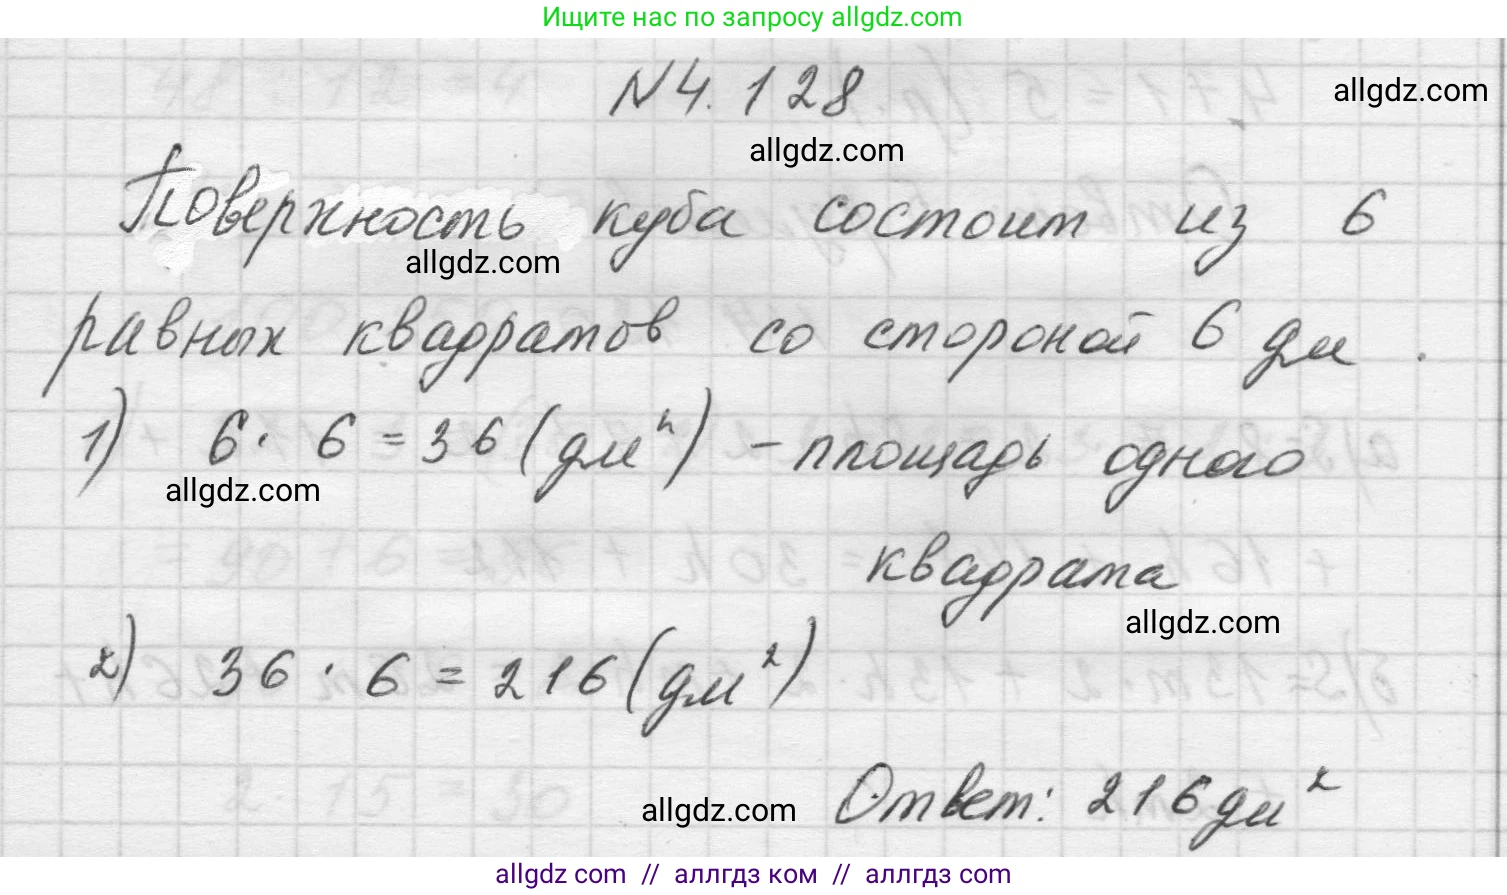 Ищите нас по запросу allgdz.com
N4.128
allgdz.com
allgdz.com
Поверхность куба состоит из 6
allgdz.com
равных квадратов со стороной 6 дм.
1) 6 · 6 = 36 (дм²) - площадь одного
allgdz.com
квадрата
allgdz.com
2) 36 · 6 = 216 (дм²)
allgdz.com
Ответ: 216 дм²
allgdz.com // аллгдз ком // аллгдз com